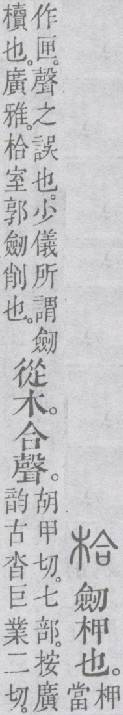 㭘劒柙也。柙
當
作匣。聲之誤也。少儀所謂劒
櫝也。廣雅。㭘室郭劒削也。
從木。合聲。
胡甲切。七部。按廣
韵古沓巨業二切。